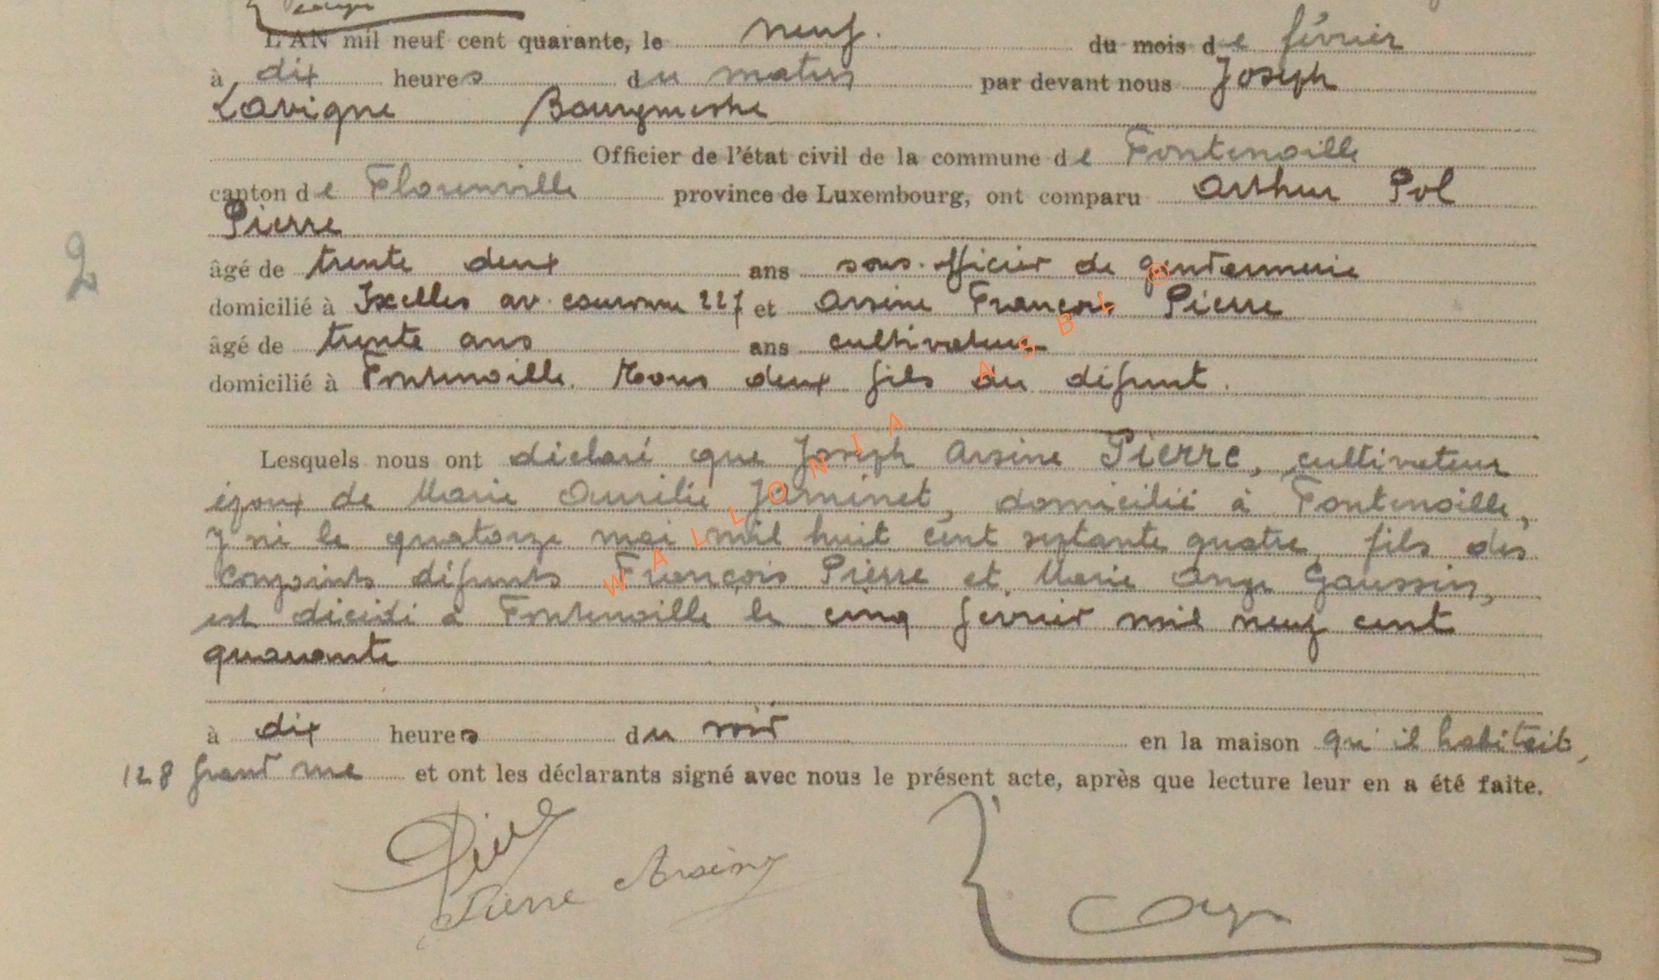 L'AN mil neuf cent quarante, le neuf. du mois de février
à dix heures du matin par devant nous Joseph
Lavigne Bourgmestre
Officier de l'état civil de la commune de Fontenoille
canton de Florenville province de Luxembourg, ont comparu Arthur Pol
Pierre
2
âgé de trente deux ans sous-officier de gendarmerie
domicilié à Ixelles av. couronne 227 et Arsène François Pierre
âgé de trente ans ans cultivateur
domicilié à Fontenoille. Tous deux fils du défunt.
Lesquels nous ont déclaré que Joseph Arsène Pierre, cultivateur
époux de Marie Aurélie Jaminet, domicilié à Fontenoille,
y né le quatorze mai mil huit cent septante quatre, fils des
conjoints défunts François Pierre et Marie Ange Gaussin,
est décédé à Fontenoille le cinq février mil neuf cent
quarante
à dix heures du soir en la maison qu'il habitait,
128 grand rue et ont les déclarants signé avec nous le présent acte, après que lecture leur en a été faite.
Pierre
Pierre Arsène
WALLONIA ASBL ©